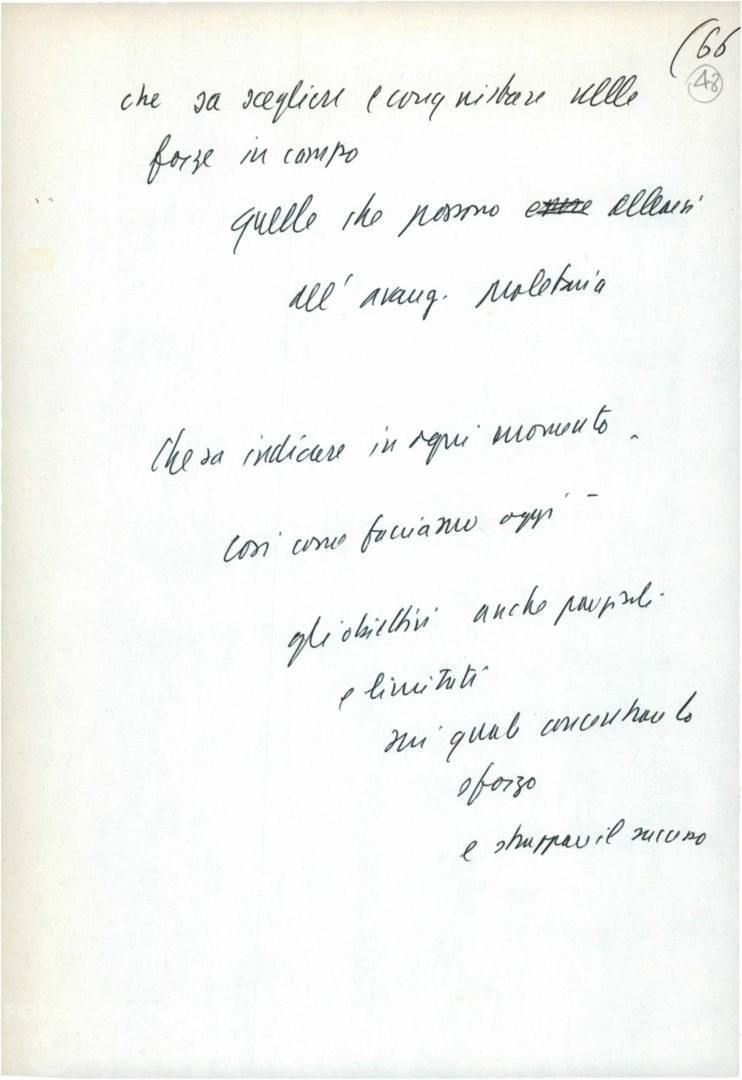 (66
48
che sa scegliere e conquistare nelle
forze in campo
quelle che possono essere allearsi
all' avang. proletaria
Che sa indicare in ogni momento -
così come facciamo oggi -
gli obiettivi anche parziali
e limitati
sui quali concentrare lo
sforzo
e strappare il successo